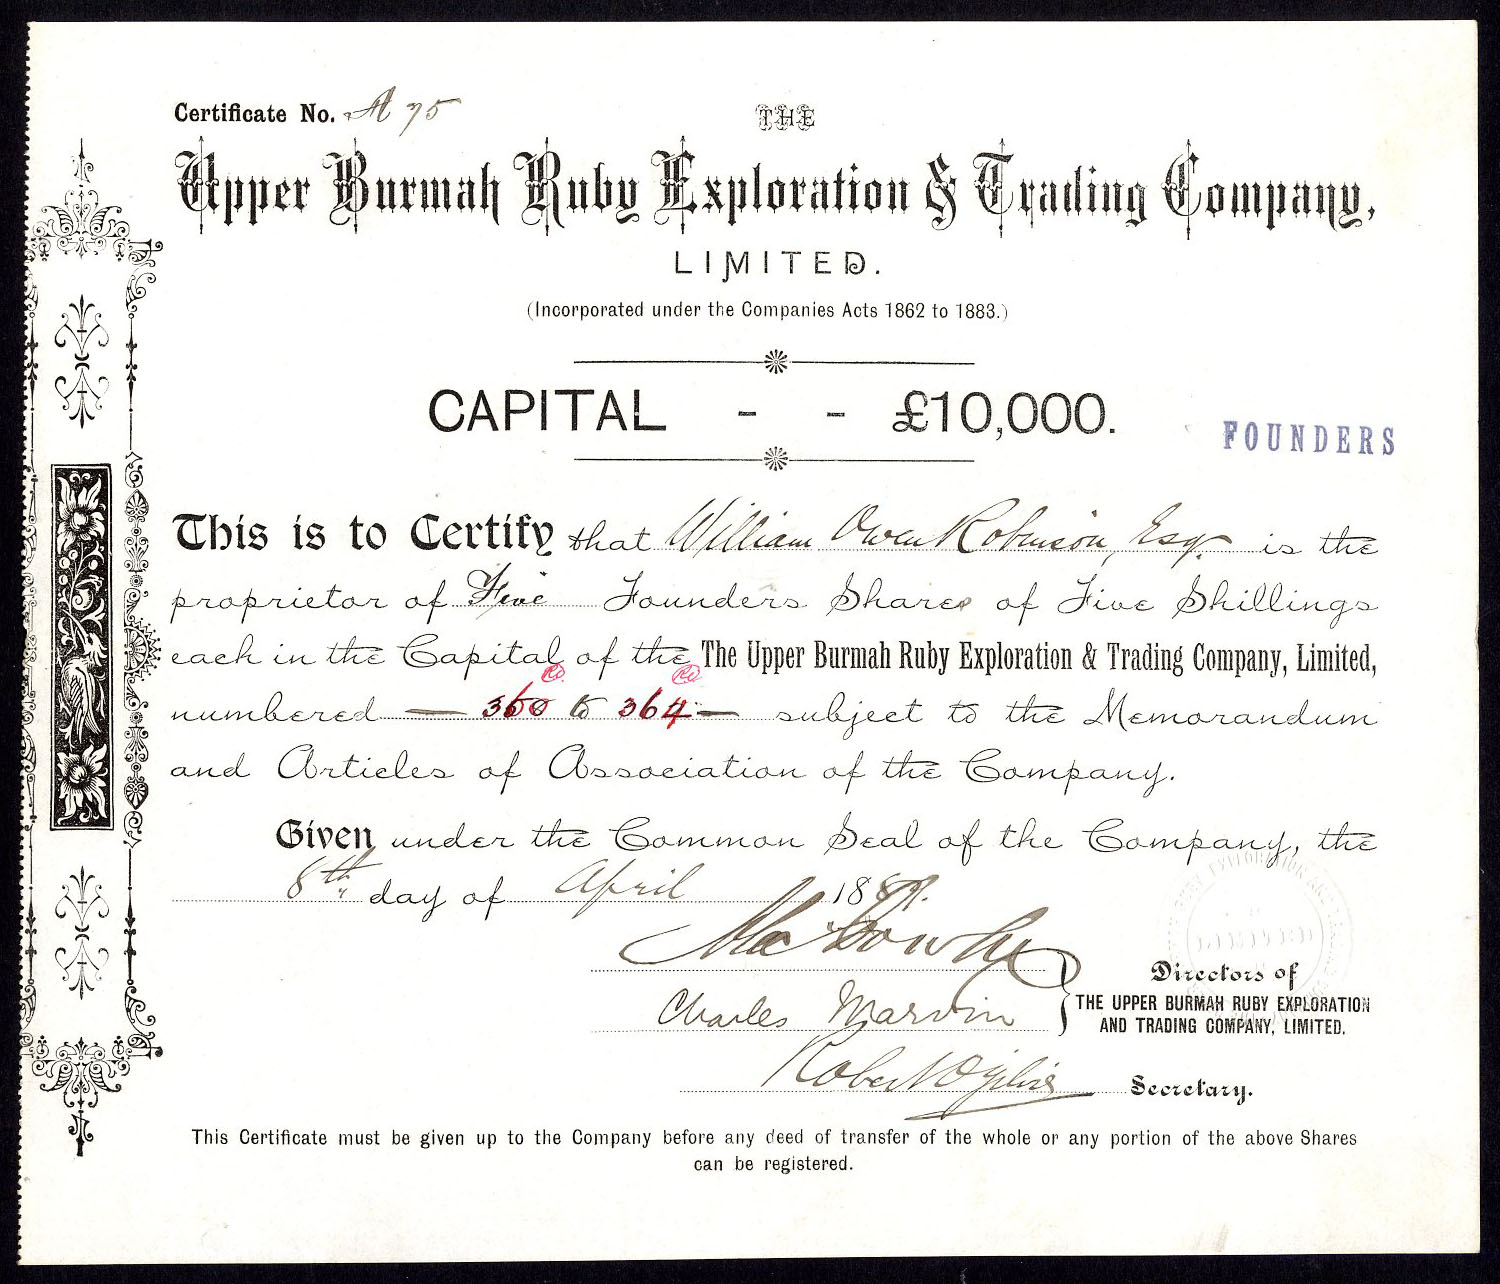 Certificate No. A 75
THE
Upper Burmah Ruby Exploration & Trading Company,
LIMITED.
(Incorporated under the Companies Acts 1862 to 1883.)
CAPITAL - - £10,000.
FOUNDERS
This is to Certify that William Owen Robinson, Esq. is the
proprietor of Five Founders Shares of Five Shillings
each in the Capital of the The Upper Burmah Ruby Exploration & Trading Company, Limited,
numbered — 360 to 364 — subject to the Memorandum
and Articles of Association of the Company.
Given under the Common Seal of the Company, the
8th day of April 1889.
Charles Marvin
Directors of
THE UPPER BURMAH RUBY EXPLORATION
AND TRADING COMPANY, LIMITED.
Robert Ogilvie
Secretary.
This Certificate must be given up to the Company before any deed of transfer of the whole or any portion of the above Shares
can be registered.